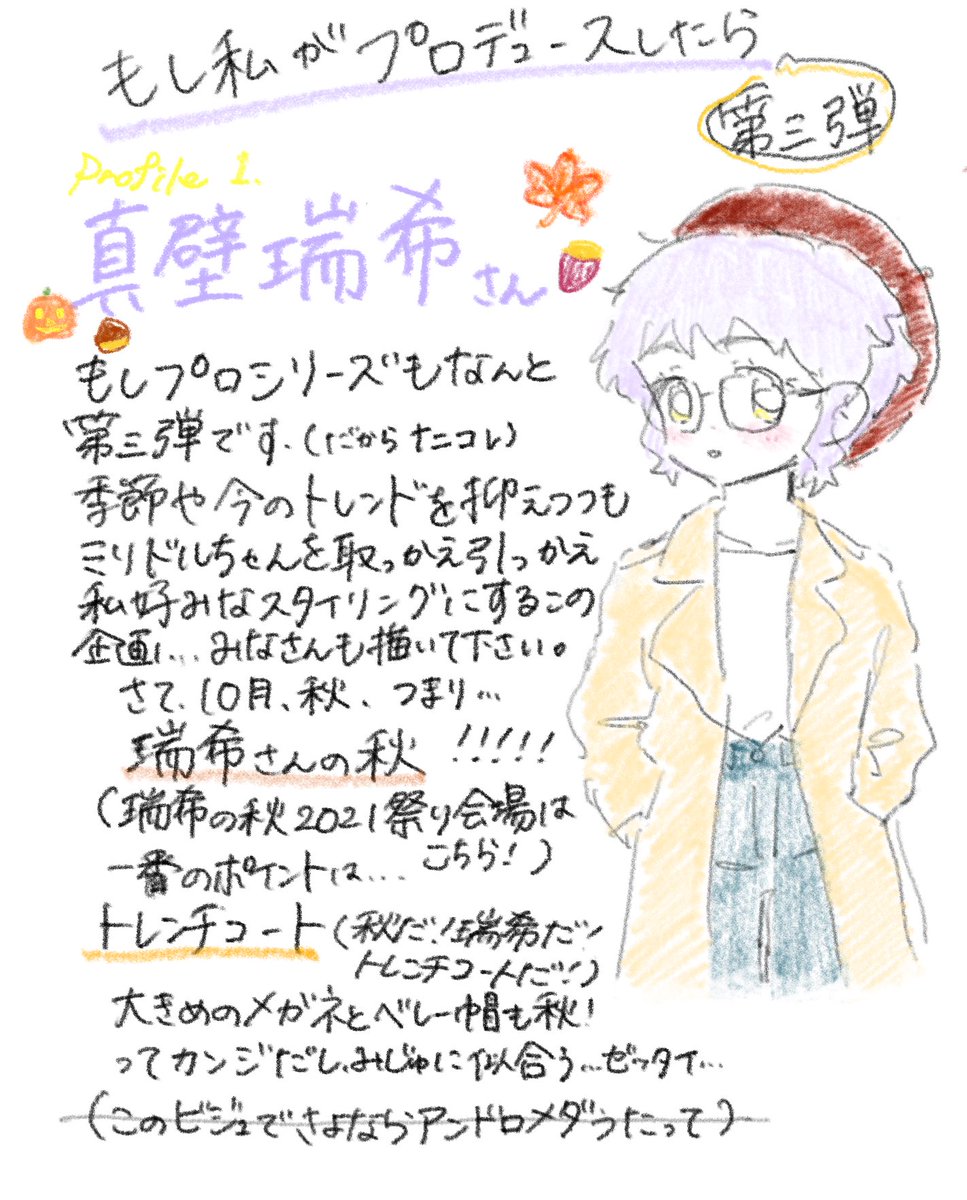 もし私がプロデュースしたら
第三弾
Profile 1.
真壁瑞希さん
もしプロシリーズもなんと
第三弾です.(だからナニコレ)
季節や今のトレンドを抑えつつも
ミリドルちゃんを取っかえ引っかえ
私好みなスタイリングにするこの
企画!...みなさんも描いて下さい。
さて、10月、秋、つまり...
瑞希さんの秋 !!!!!
(瑞希の秋2021祭り会場は
こちら!)
一番のポイントは....
トレンチコート(秋だ!瑞希だ!
トレンチコートだ!)
大きめのメガネとベレー帽も秋!
ってカンジだし、みじゅに似合う...ゼッタイ...
(このビジュでさよならアンドロメダうたって)